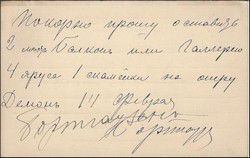 Покорно прошу оставить
2 Балкон или Галлерею
4 яруса 1 скамейки на оперу
Демонъ 14 Февраля